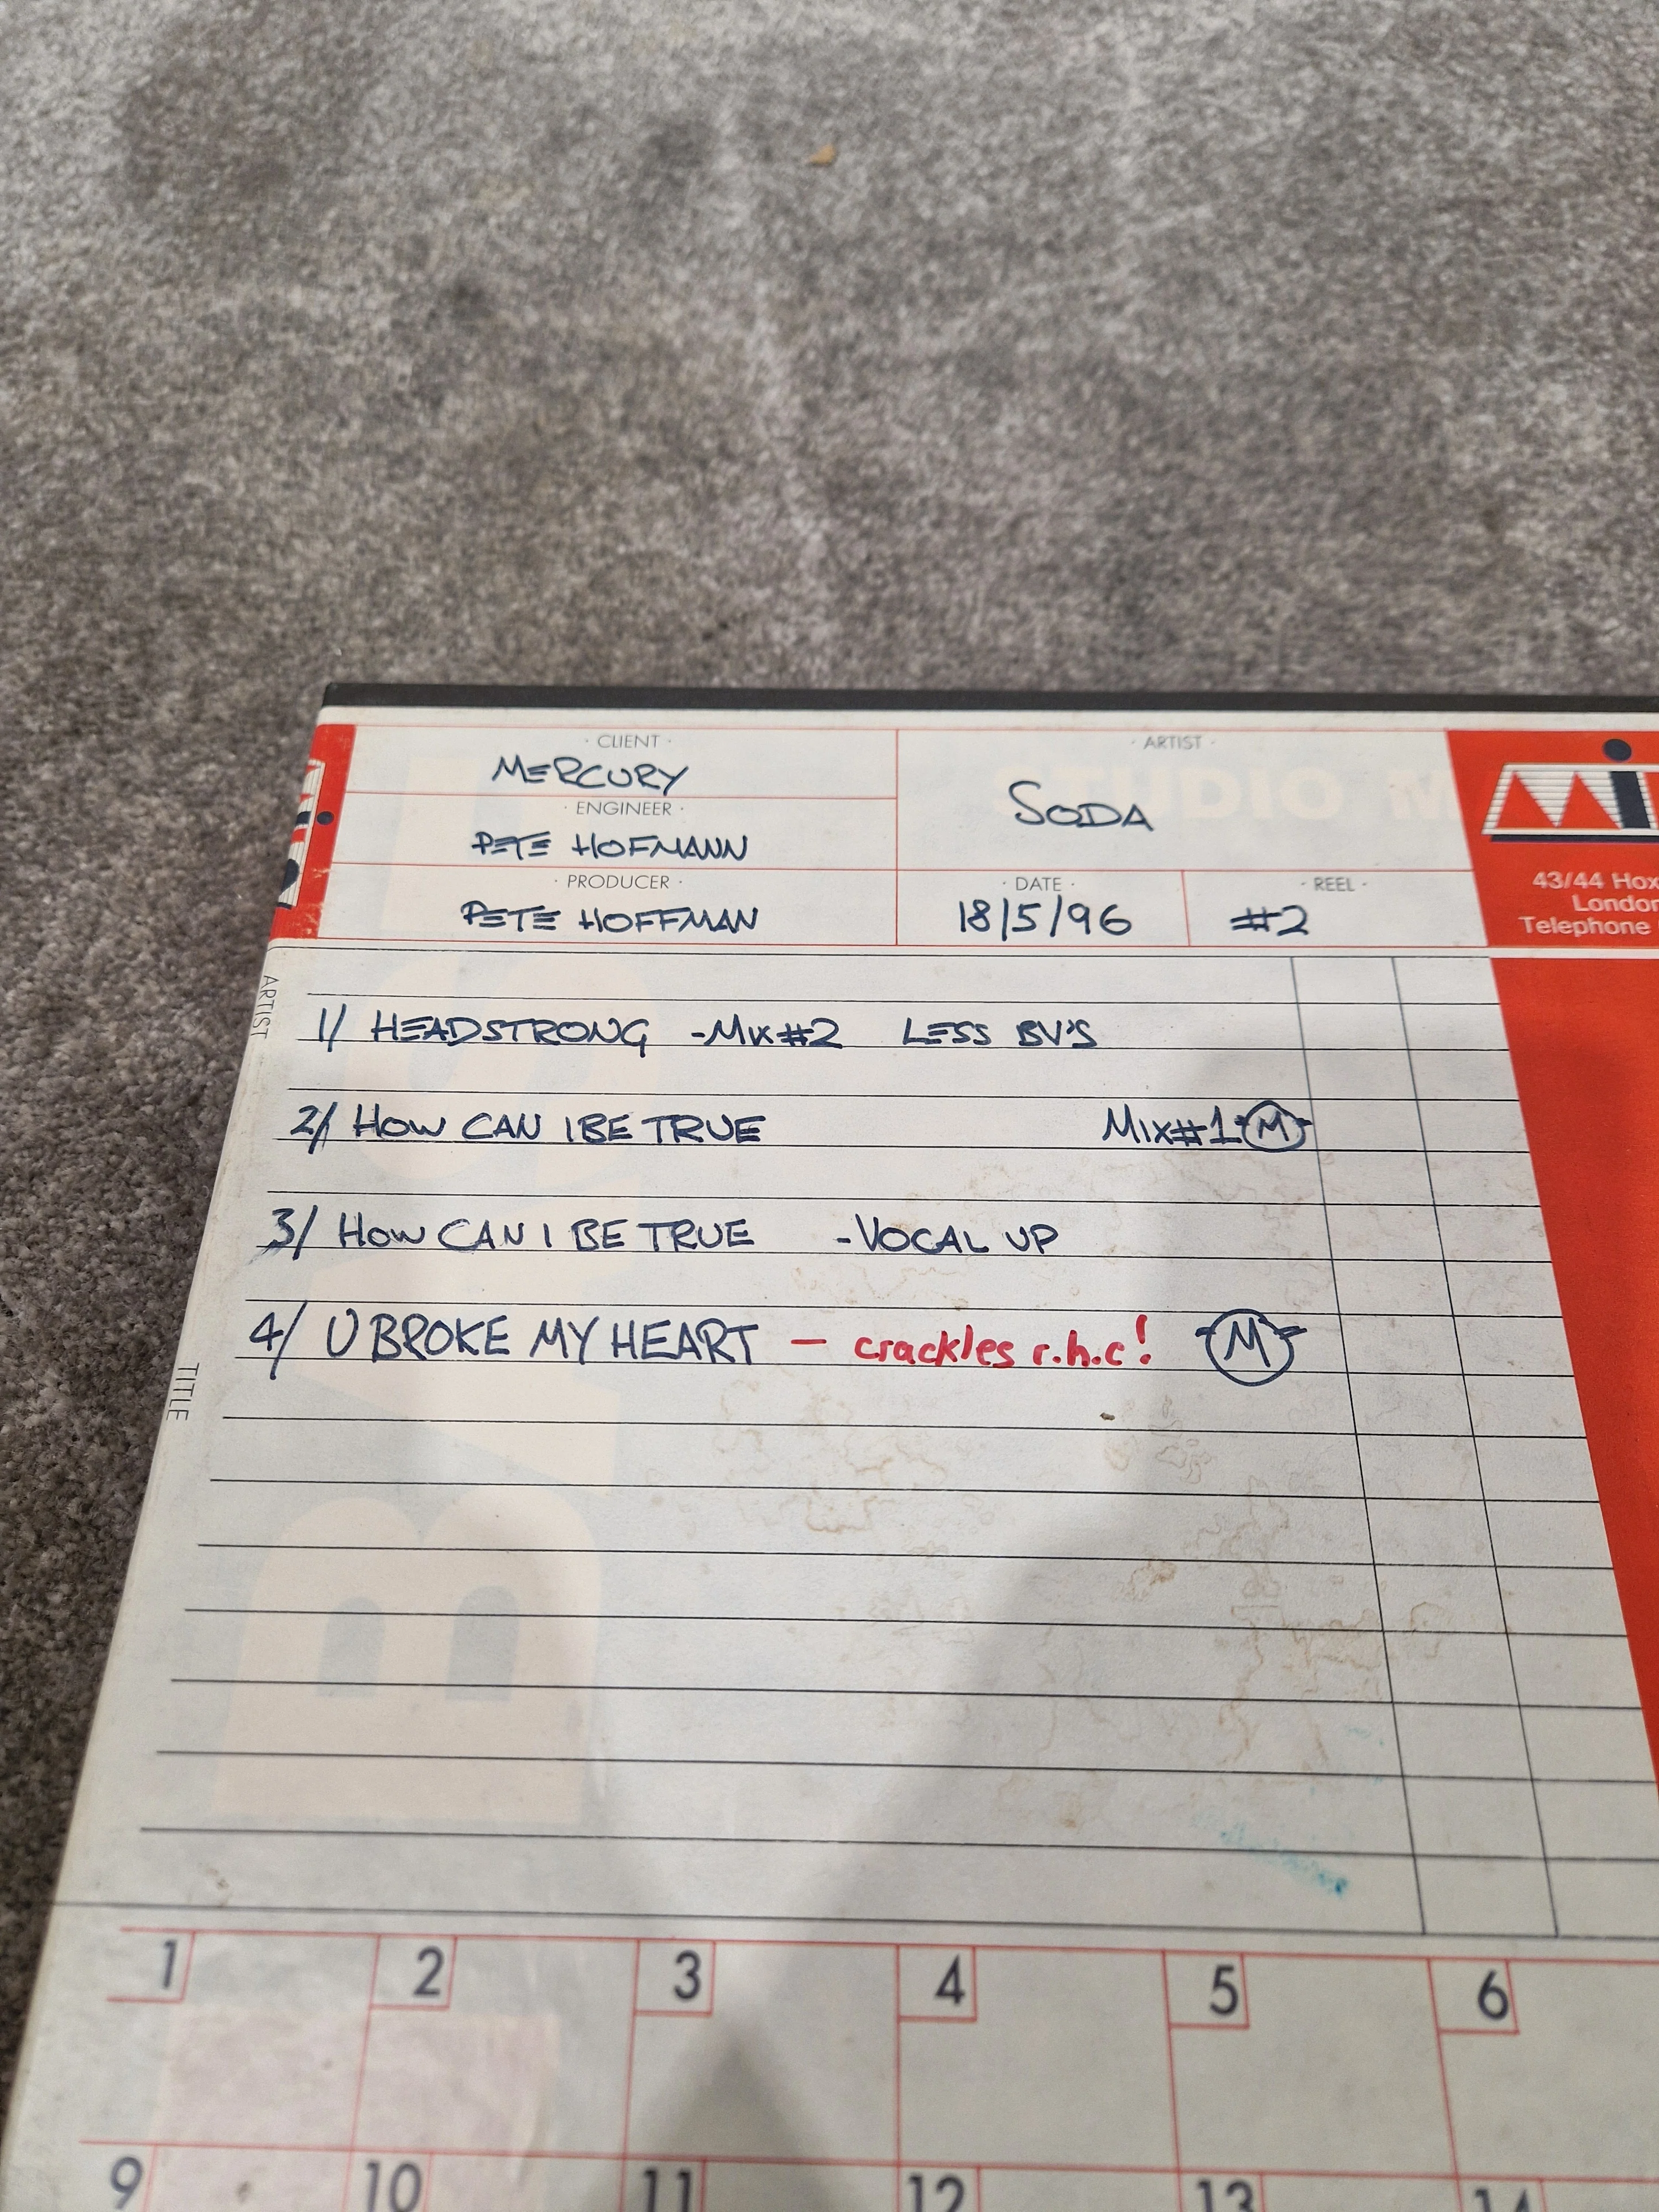 · CLIENT ·
MERCURY
· ENGINEER ·
PETE HOFMANN
· PRODUCER ·
PETE HOFFMAN
· ARTIST ·
SODA
· DATE ·
18/5/96
· REEL ·
#2
43/44
London
Telephone
ARTIST
1/ HEADSTRONG -MIX#2 LESS BV'S
2/ HOW CAN I BE TRUE MIX#1 M
3/ HOW CAN I BE TRUE -VOCAL UP
4/ U BROKE MY HEART — crackles r.h.c! M
TITLE
1 2 3 4 5 6
9 10 11 12 13 14